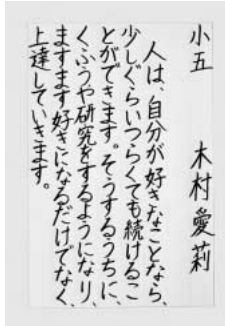 小五 木村愛莉
人は、自分が好きなことなら、
少しぐらいつらくても続けるこ
とができます。そうするうちに、
くふうや研究をするようになり、
ますます好きになるだけでなく、
上達していきます。